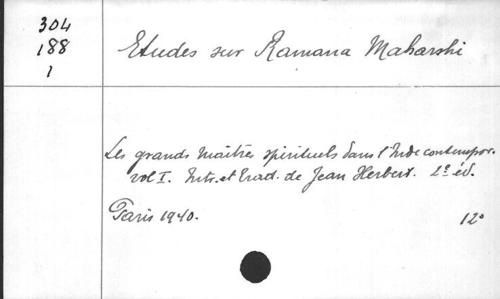 304
188
1
Etudes sur Ramana Maharshi
Les grands maîtres spirituels dans l'Inde contempor.
vol I. Intr. et trad. de Jean Herbert. 2e éd.
Paris 1940.
12°